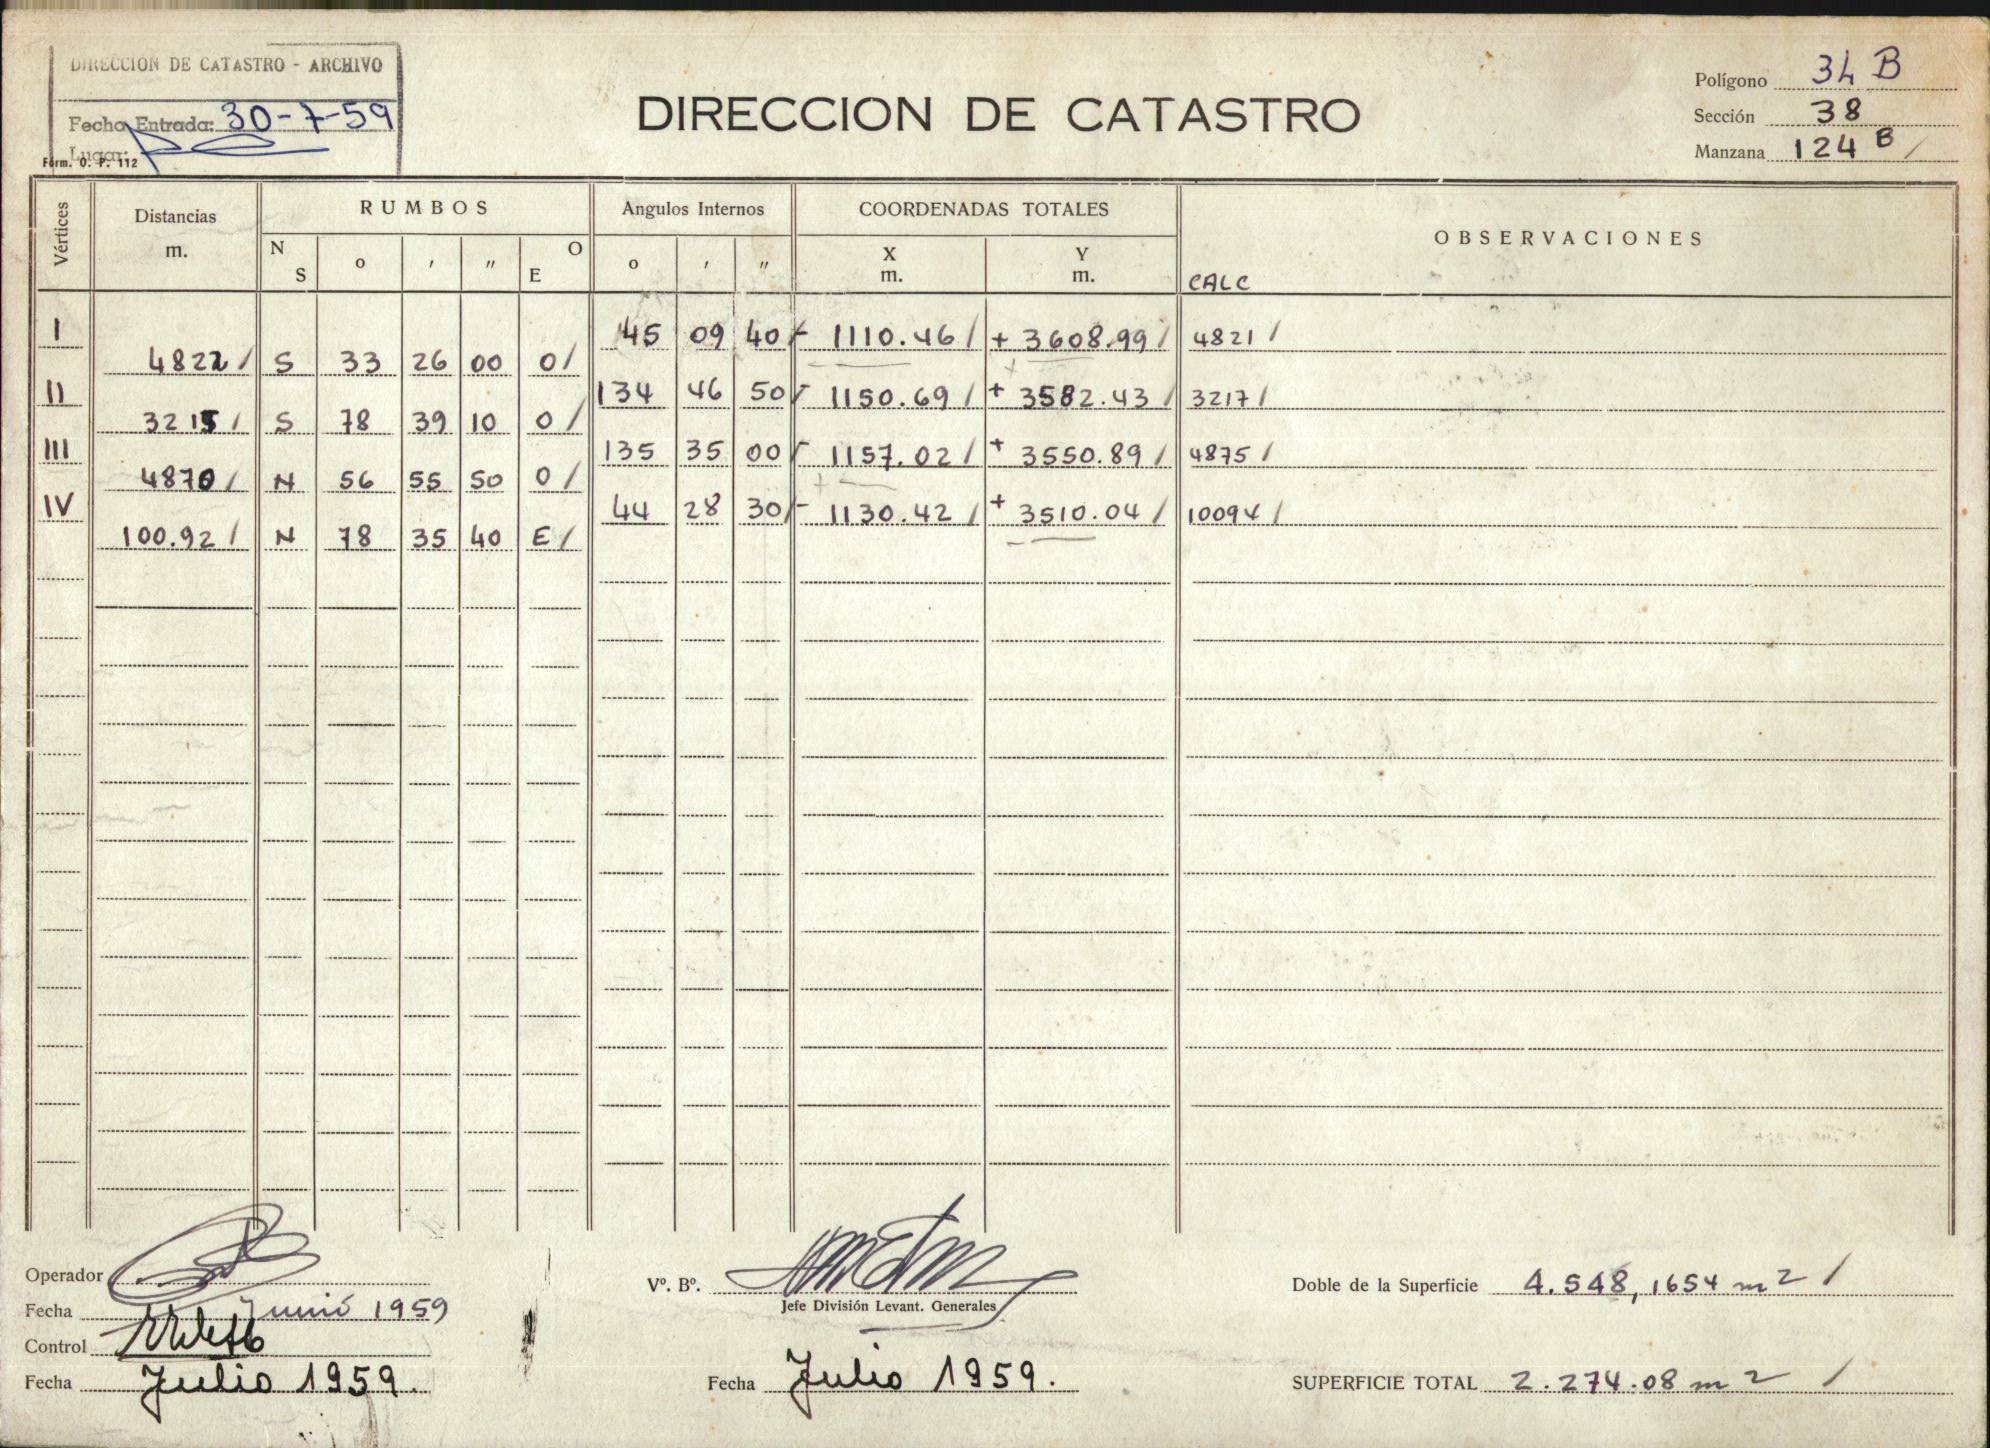 DIRECCION DE CATASTRO - ARCHIVO
Fecha Entrada: 30-7-59
Lugar:
Form. O. P. 112
DIRECCION DE CATASTRO
Polígono 34 B
Sección 38
Manzana 124 B /
Vértices Distancias m. RUMBOS Angulos Internos COORDENADAS TOTALES OBSERVACIONES
N S o ′ ″ O E o ′ ″ X m. Y m. CALC
I 45 09 40 - 1110.46 / + 3608.99 / 4821 /
4822 / S 33 26 00 O /
II 134 46 50 - 1150.69 / + 3582.43 / 3217 /
3215 / S 78 39 10 O /
III 135 35 00 - 1157.02 / + 3550.89 / 4875 /
4870 / N 56 55 50 O /
IV 44 28 30 - 1130.42 / + 3510.04 / 10094 /
100.92 / N 78 35 40 E /
Operador
Fecha Junio 1959
Control
Fecha Julio 1959.
Vº. Bº.
Jefe División Levant. Generales
Fecha Julio 1959.
Doble de la Superficie 4.548,1654 m2 /
SUPERFICIE TOTAL 2.274.08 m2 /